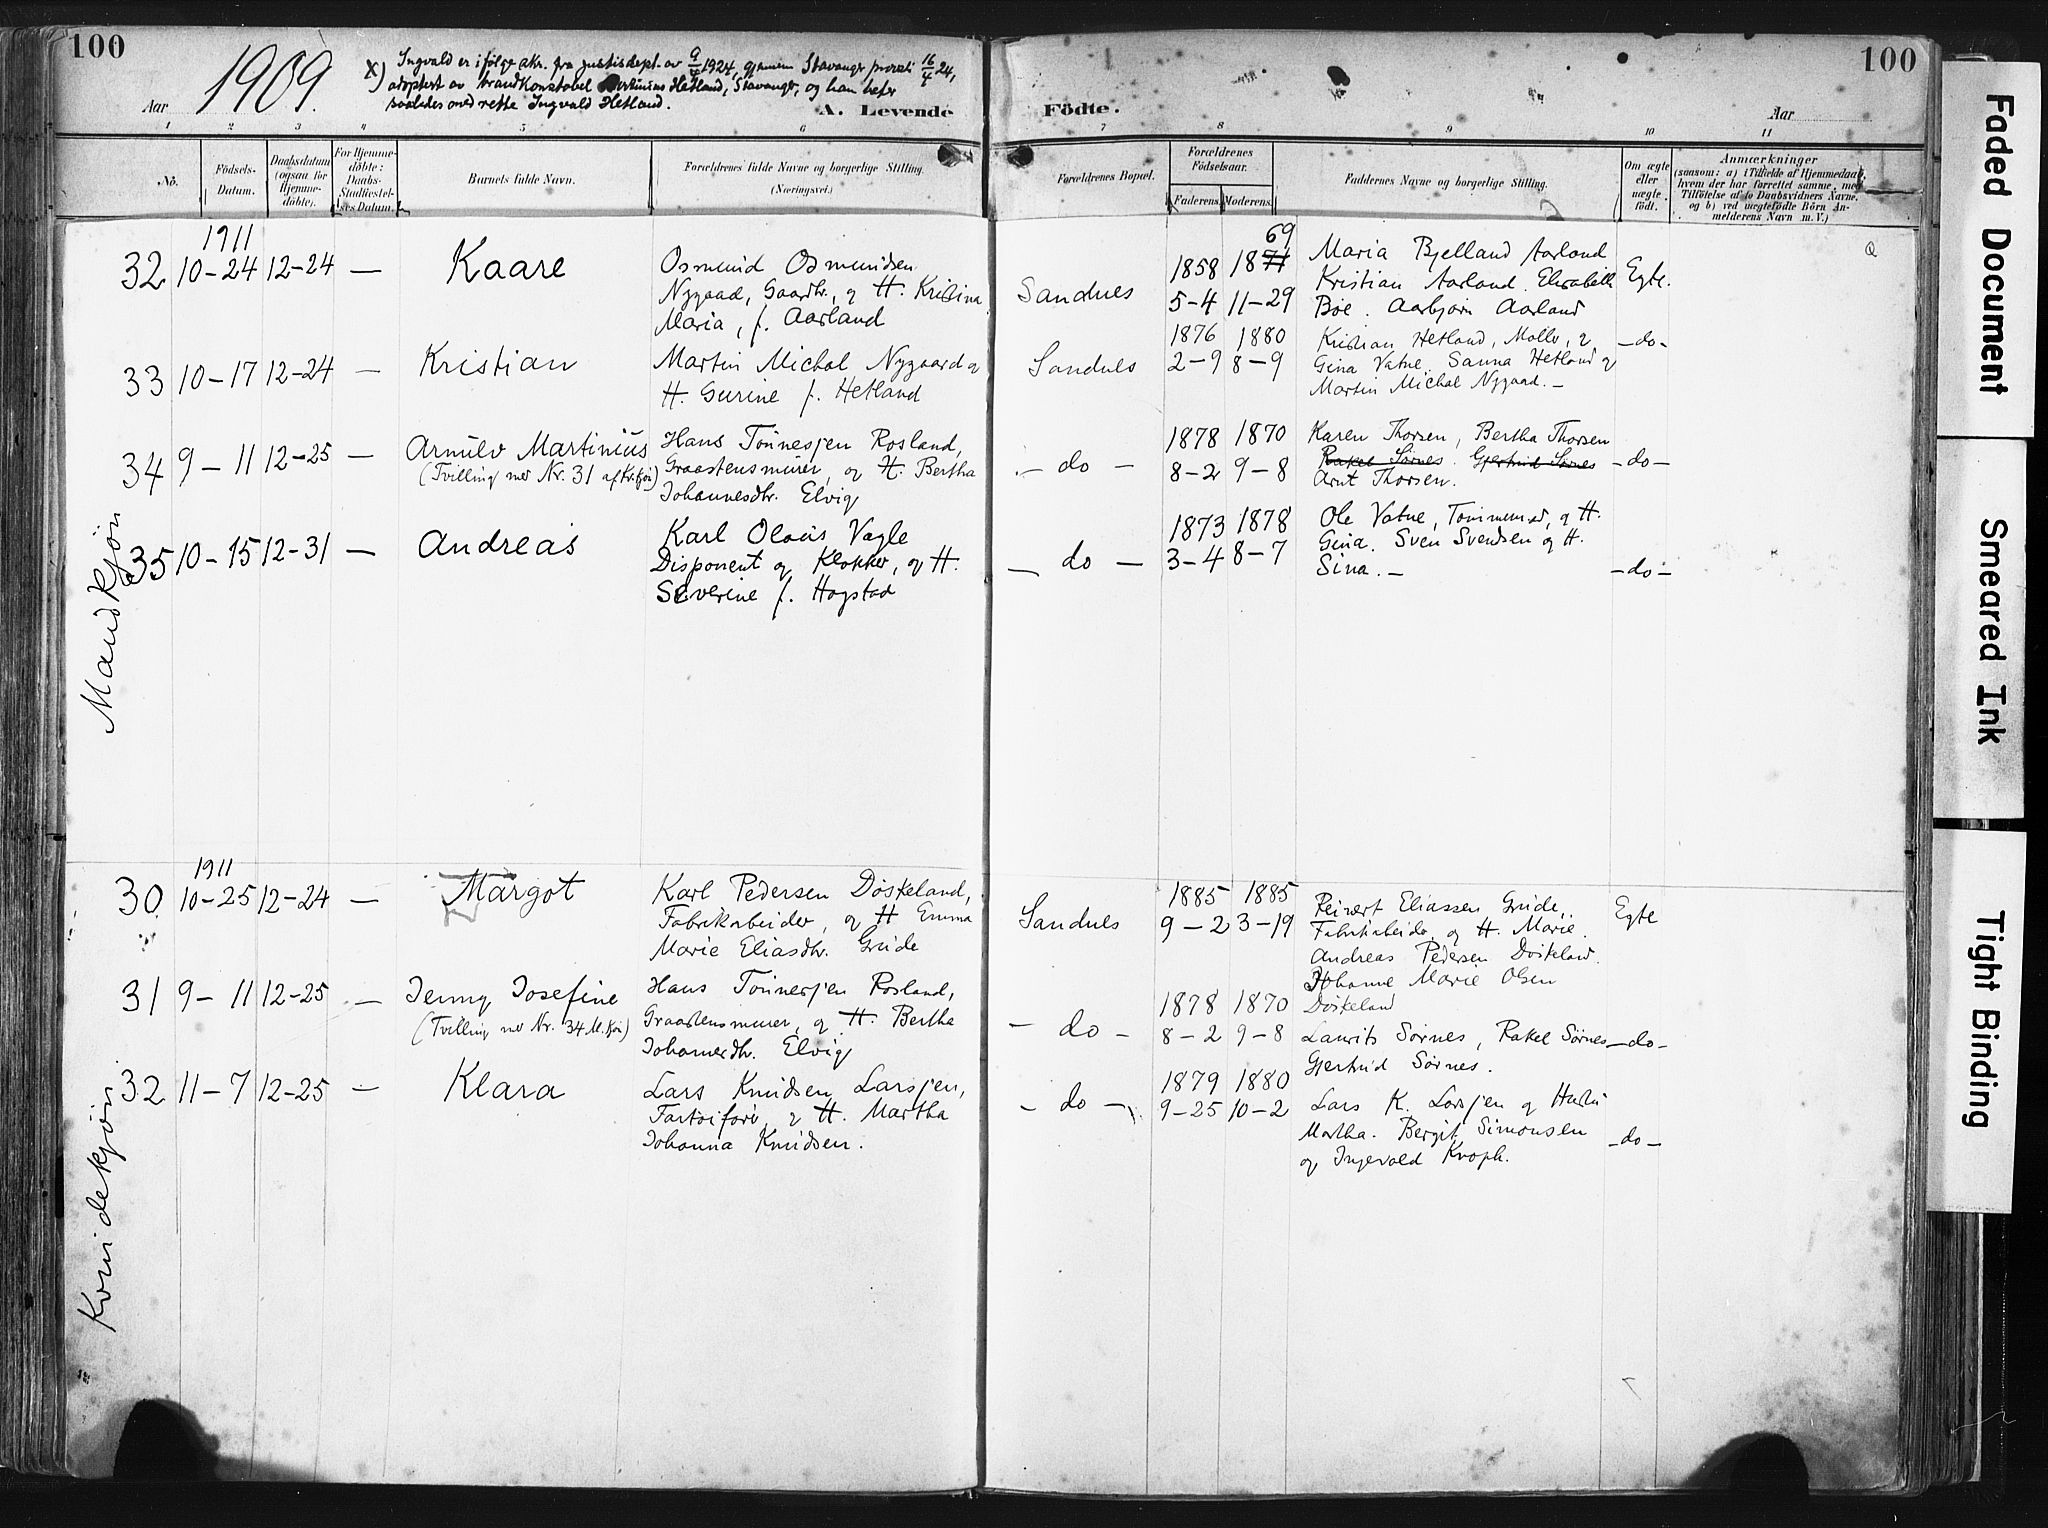 100
100
Aar 1909.
X) Ingvald er ifølge skr. fra justisdept. av 9/4 1924, gjennem Stavanger provsti 16/4 24,
adoptert av brandkonstabel Hetland, Stavanger, og han heter
saaledes med rette Ingvald Hetland.
A. Levende Födte.
Aar
1 2 3 4 5 6 7 8 9 10 11
No.
Födsels-Datum.
Daabsdatum (ogsaa for Hjemme-döbte).
For Hjemme-döbte: Daabs-Stadfæstel-ses Datum.
Barnets fulde Navn.
Forældrenes fulde Navne og borgerlige Stilling. (Næringsvei.)
Forældrenes Bopæl.
Forældrenes Födselsaar.
Faderens. Moderens.
Faddernes Navne og borgerlige Stilling.
Om ægte eller uægte födt.
Anmærkninger
(saasom: a) i Tilfælde af Hjemmedaab, hvem der har forrettet samme, med Tilföielse af to Daabsvidners Navne, og b) ved uægtefödte Börn An-melderens Navn m. V.)
Mandkjøn
1911
32 10-24 12-24 — Kaare
Osmund Osmundsen
Nygaad, Gaardbr., og H. Kristina
Maria, f. Aarland
Sandnes
1858 1871 69
5-4 11-29
Maria Bjelland Aarland
Kristian Aarland. Elisabeth
Bøe. Aarbjørn Aarland
Egte.
33 10-17 12-24 — Kristian
Martin Michal Nygaard og
H. Gurine f. Hetland
Sandnes
1876 1880
2-9 8-9
Kristian Hetland, Møller, og
Gina Vatne. Sanna Hetland og
Martin Michal Nygaad. —
—do—
34 9-11 12-25 — Arnulv Martinius
(Tvilling med Nr. 31 af Kv.kjøn)
Hans Tønnesjen Rosland,
Graastensmurer, og H. Bertha
Johannesdtr. Elvig
— do —
1878 1870
8-2 9-8
Karen Thorsen, Bertha Thorsen
Rakel Sørnes. Gjertrud Sørnes
Arnt Thorsen.
—do—
35 10-15 12-31 — Andreas
Karl Olaus Vagle
Disponent og Klokker, og H.
Severine f. Hogstad
— do —
1873 1878
3-4 8-7
Ole Vatne, Tømmermd, og H.
Gina. Sven Svendsen og H.
Sina. —
—do—
Kvindekjøn
1911
30 10-25 12-24 — Margot
Karl Pedersen Døskeland,
Fabrikarbeider, og H Emma
Marie Eliasdtr. Grude
Sandnes
1885 1885
9-2 3-19
Reinert Eliassen Grude,
Fabrikarbeider og H. Marie.
Andreas Pedersen Døskeland.
Johanne Marie Olsen
Døskeland
Egte
31 9-11 12-25 — Jenny Josefine
(Tvilling med Nr. 34 M.kjøn)
Hans Tønnesjen Rosland,
Graastensmurer, og H. Bertha
Johannesdtr. Elvig
— do —
1878 1870
8-2 9-8
Laurits Sørnes, Rakel Sørnes
Gjertrud Sørnes.
—do—
32 11-7 12-25 — Klara
Lars Knudsen Larsjen,
og H. Martha
Johanna Knudsen.
— do —
1879 1880
9-25 10-2
Lars K. Larsjen og Hustru
Martha. Bergit Simonsen
og Ingevald
—do—
Faded Document
Smeared Ink
Tight Binding